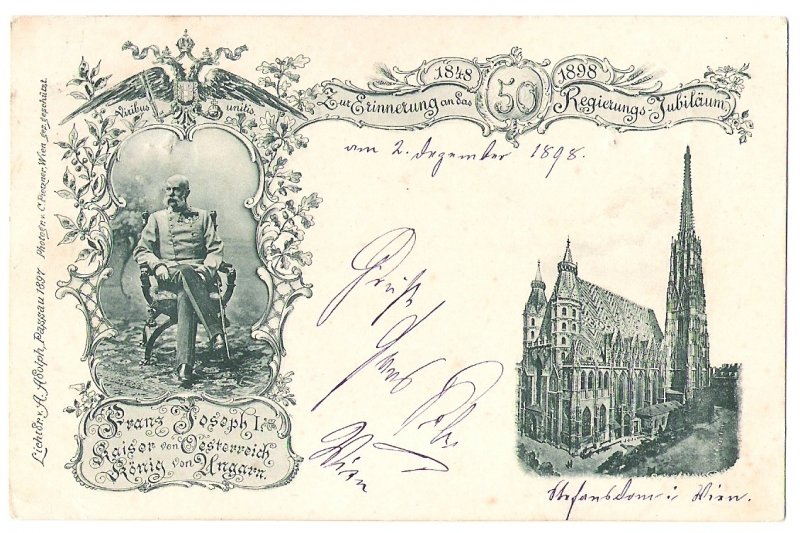 Viribus unitis
1848 50 1898
Zur Erinnerung an das Regierungs-Jubiläum
am 2. Dezember 1898.
Grüße
Hans
Wien
Franz Joseph I.
Kaiser von Oesterreich
König von Ungarn.
Stefansdom i Wien.
Lichtdr. v. A. Adolph, Passau 1897 Photogr. v. C. Pietzner, Wien, ges. geschützt.